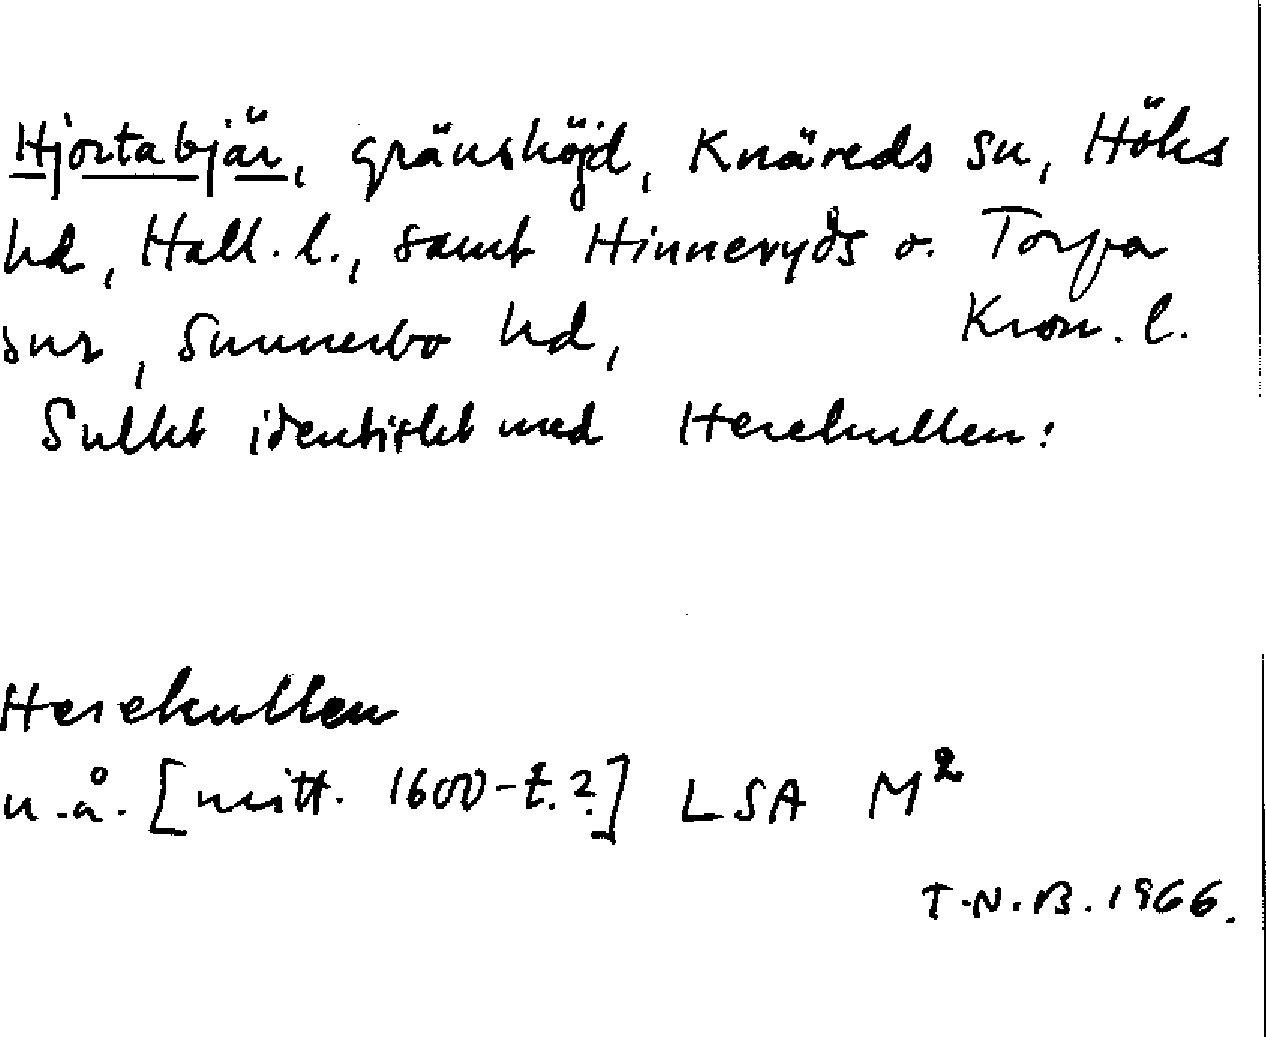 Hjortabjär, gränshöjd, Knäreds sn, Höks
hd, Hall. l., samt Hinneryds o. Torpa
snr, Sunnerbo hd, Kron. l.
Sulkt identiskt med Herekullen:
Herekullen
u.å. [mitt. 1600-t.?] LSA M²
T.N.B. 1966.